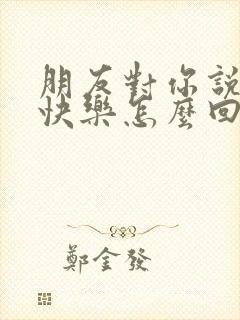 朋友對你說
快樂怎麼回
鄭金發